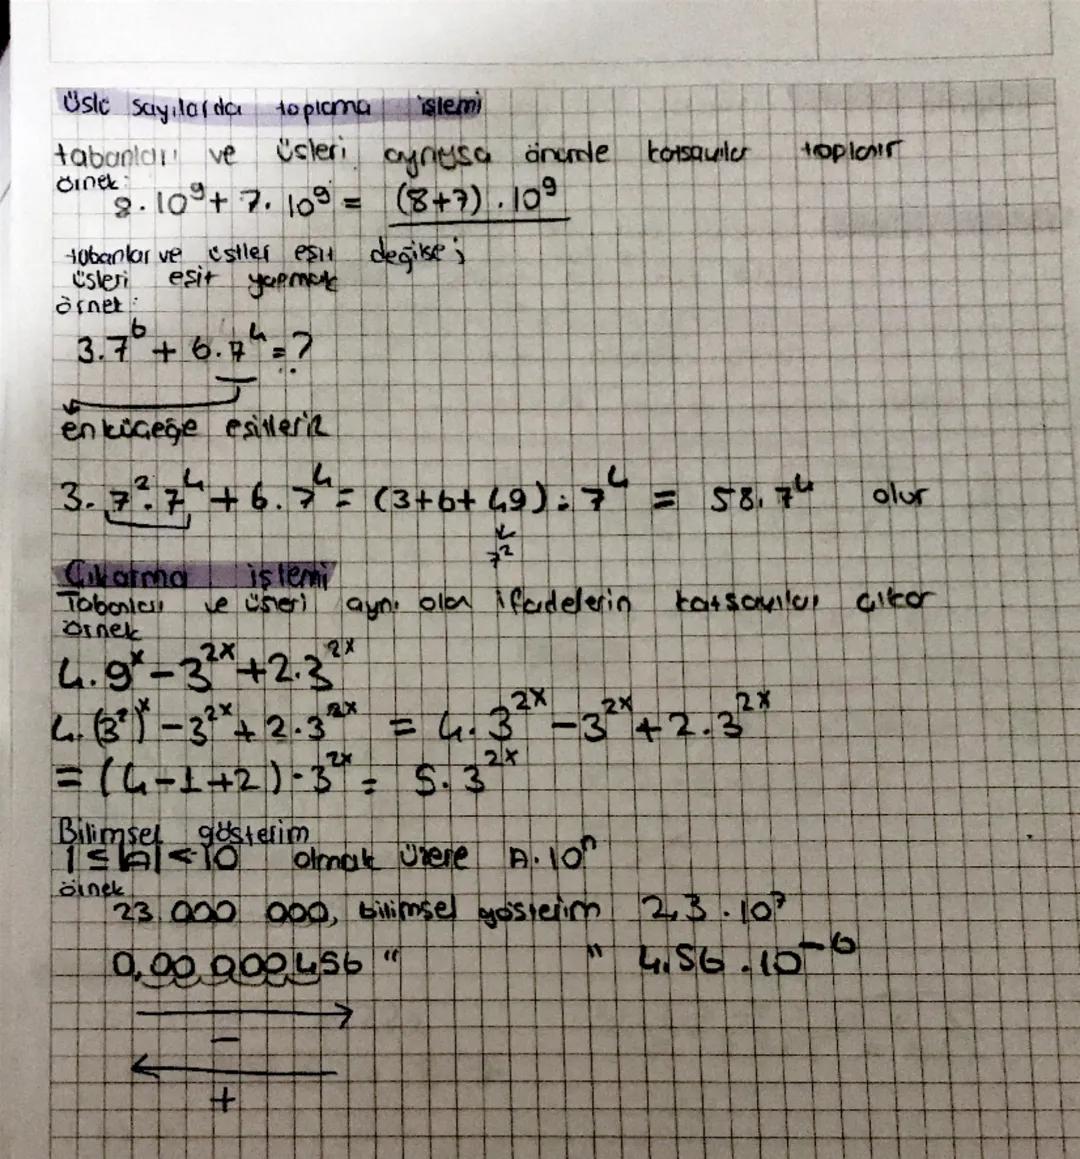 üslü sayılarda toplama işlemi
tabanları ve üsleri aynıysa önünde katsayılar toplanır
örnek:
8.10⁹+7.10⁹ = (8+7).10⁹
tabanlar ve üstler eşit değilse;
üsleri eşit yapmak
örnek:
3.7⁶ + 6.7⁴ = ?
en küçeğe eşitleriz
3.7².7⁴ + 6.7⁴ = (3+6+49).7⁴ = 58.7⁴ olur
7²
Çıkarma işlemi
Tabanları ve üsleri aynı olan ifadelerin katsayıları çıkar
örnek
4.9ˣ - 3²ˣ + 2.3²ˣ
4.(3²)ˣ - 3²ˣ + 2.3²ˣ = 4.3²ˣ - 3²ˣ + 2.3²ˣ
= (4-1+2).3²ˣ = 5.3²ˣ
Bilimsel gösterim
1 ≤ |A| < 10 olmak üzere A.10ⁿ
örnek
23 000 000, bilimsel gösterim 2,3.10⁷
0,00 000 456 " " 4,56.10⁻⁶
-
+